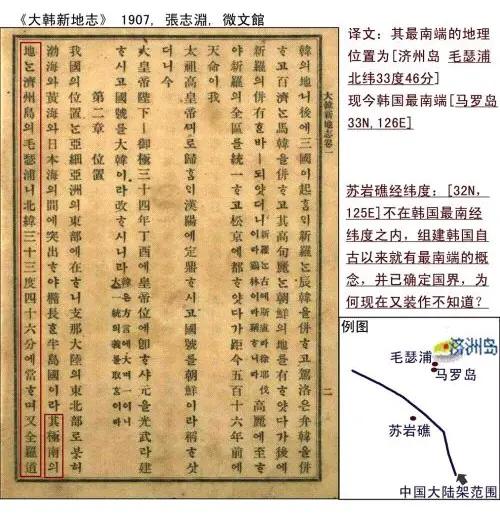 《大韩新地志》 1907, 張志淵, 微文館
大韓新地志卷一
韓의地니後에三國이起ᄒᆞᆷ이新羅ᄂᆞᆫ辰韓을併ᄒᆞ고駕洛은弁韓을併
ᄒᆞ고百濟ᄂᆞᆫ馬韓을併ᄒᆞ고其高句麗ᄂᆞᆫ朝鮮의地를有ᄒᆞ얏다가後에
新羅의併有ᄒᆞᆫ바ㅣ되얏더니 高麗에至ᄒᆞ
야新羅의全區를統一ᄒᆞ고松京에都ᄒᆞ얏다가距今五百十六年前에
天命이我
太祖高皇帝씌로歸ᄒᆞᆷ이漢陽에定鼎ᄒᆞ시고國號를朝鮮이라稱ᄒᆞ샷
더니今
大皇帝陛下ㅣ御極三十四年丁酉에皇帝位에卽ᄒᆞ샤元을光武라建
ᄒᆞ시고國號를大韓이라改ᄒᆞ시니라
第二章 位置
我國의位置ᄂᆞᆫ亞細亞洲의東北部에在ᄒᆞ니支那大陸의東北部로붓허
渤海와黃海와日本海의間에突出ᄒᆞ야楕長ᄒᆞᆫ半島國이라其極南의
地ᄂᆞᆫ濟州島의毛瑟浦니北緯三十三度四十六分에當ᄒᆞ며又全羅道
二
译文: 其最南端的地理
位置为[济州岛 毛瑟浦
北纬33度46分]
现今韩国最南端[马罗岛
33N,126E]
苏岩礁经纬度: [32N,
125E]不在韩国最南经
纬度之内, 组建韩国自
古以来就有最南端的概
念, 并已确定国界, 为
何现在又装作不知道?
例图
济洲岛
毛瑟浦
马罗岛
苏岩礁
中国大陆架范围